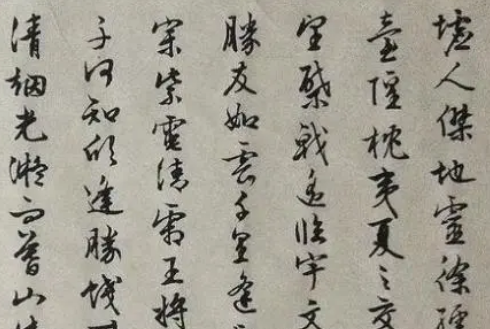 墟人傑地靈徐
臺隍枕夷夏之交
望棨戟遙臨宇文
勝友如雲千里逢
宗紫電清霜王將
子何知躬逢勝餞
清烟光凝而暮山